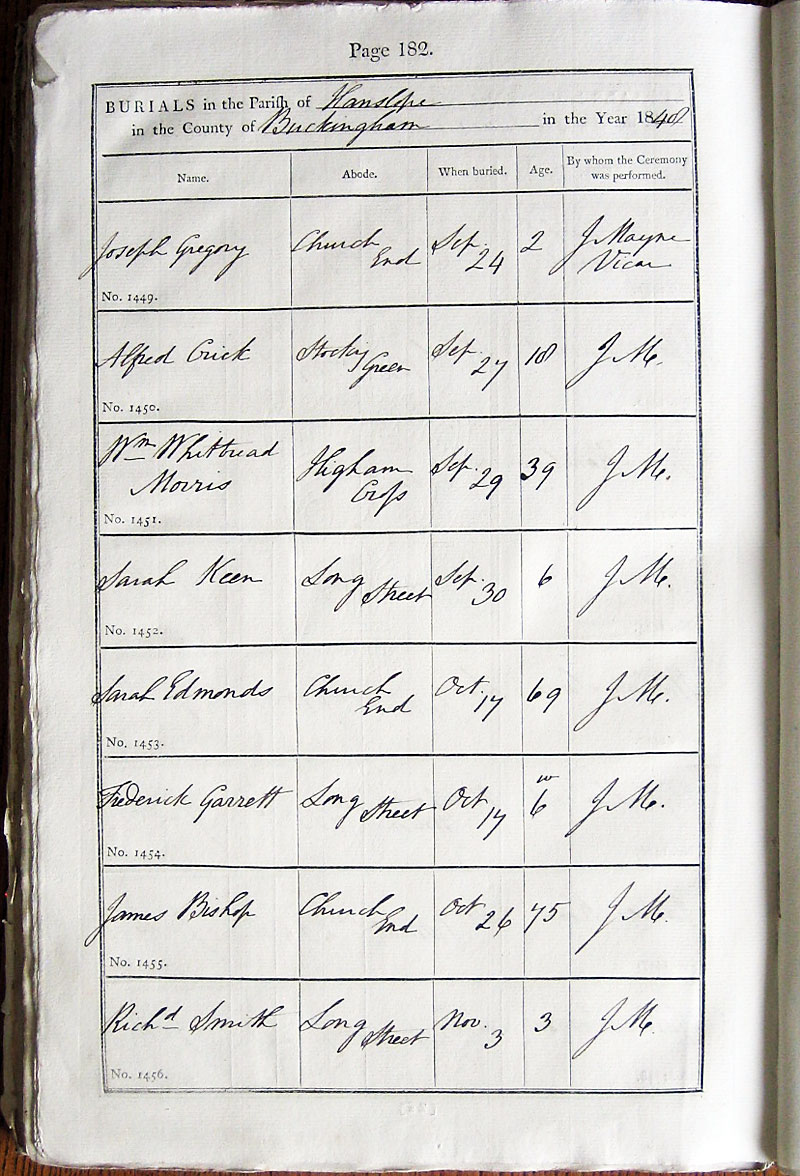 Page 182.
BURIALS in the Pariſh of Hanslope
in the County of Buckingham in the Year 1848
Name. Abode. When buried. Age. By whom the Ceremony was performed.
Joseph Gregory Church End Sep. 24 2 J Mayne Vicar
No. 1449.
Alfred Crick Stocking Green Sep. 27 18 J M.
No. 1450.
Wm Whitbread Morris Higham Croſs Sep. 29 39 J M.
No. 1451.
Sarah Keen Long Street Sep. 30 6 J M.
No. 1452.
Sarah Edmonds Church End Oct. 17 69 J M.
No. 1453.
Frederick Garrett Long Street Oct 17 6 w J M.
No. 1454.
James Bishop Church End Oct 26 75 J M.
No. 1455.
Richd Smith Long Street Nov. 3 3 J M.
No. 1456.